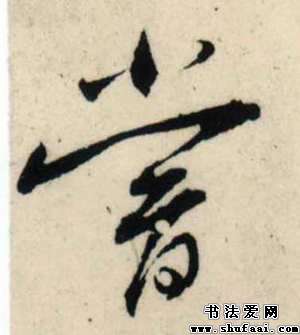 嘗
书法爱网
www.shufaai.com